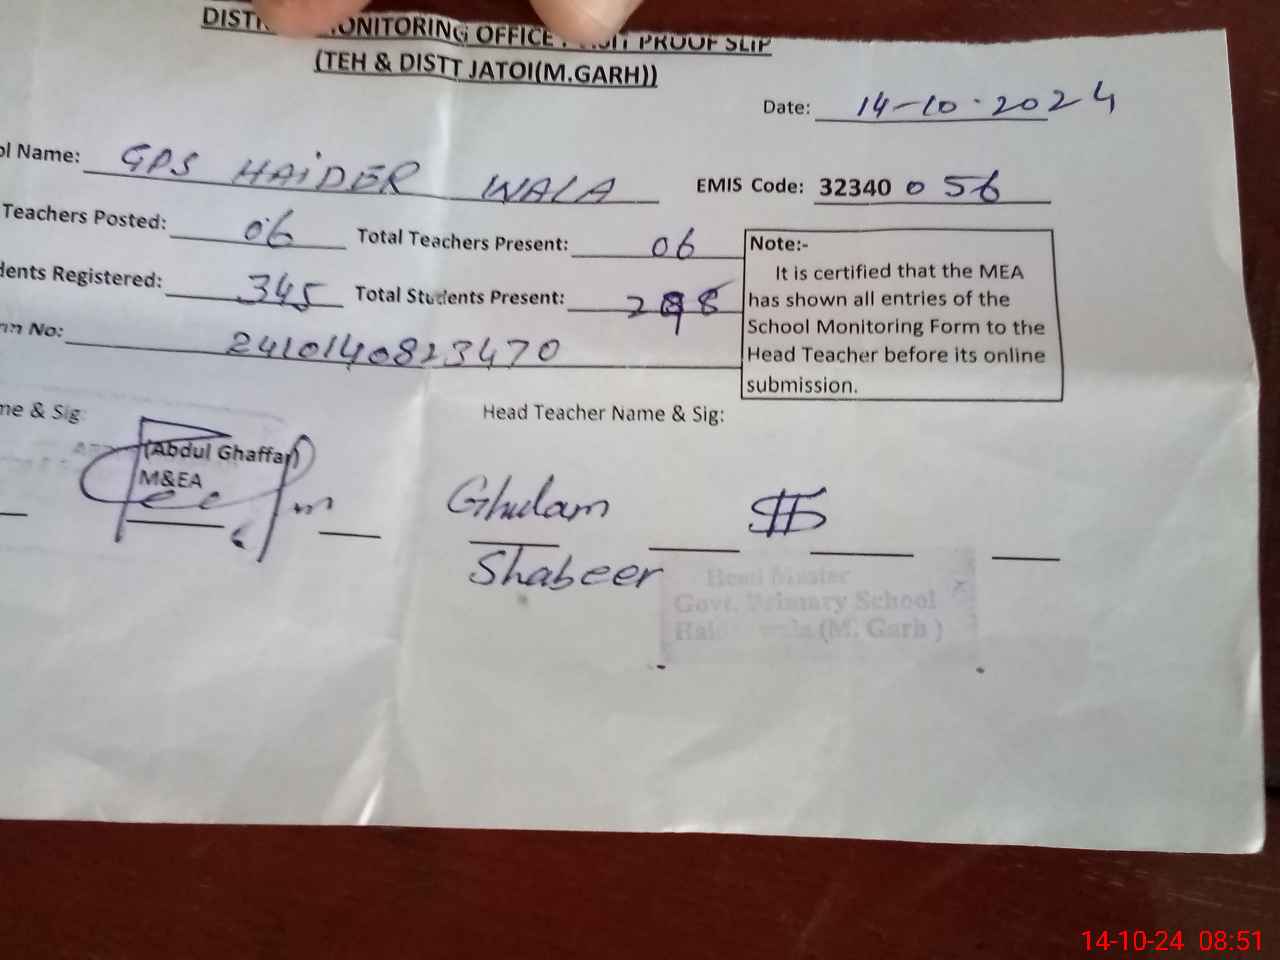 MONITORING OFFICE PROOF SLIP
(TEH & DISTT JATOI(M.GARH))
Date: 14-10-2024
Name: GPS HAIDER WALA EMIS Code: 32340 056
Teachers Posted: 06 Total Teachers Present: 06
Registered: 345 Total Students Present:
No: 2410140823470
Note:-
It is certified that the MEA
has shown all entries of the
School Monitoring Form to the
Head Teacher before its online
submission.
& Sig: Head Teacher Name & Sig:
(Abdul Ghaffar)
M&EA
Ghulam
Shabeer
Head Master
Govt. Primary School
(M. Garh)
14-10-24 08:51